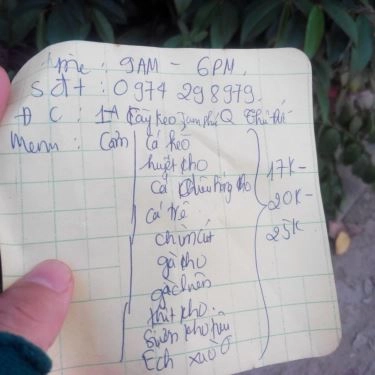 9AM - 6PM.
Sđt: 0974 298979.
ĐC: 1A Cây Keo Tam Phú Q Thủ Đức
Menu: Cơm
cá kèo
huyết kho
17K-
cá kho
20K-
cá trê
25K
chim cút
gà kho
gà chiên
thịt kho.
Sườn kho
Ếch xào